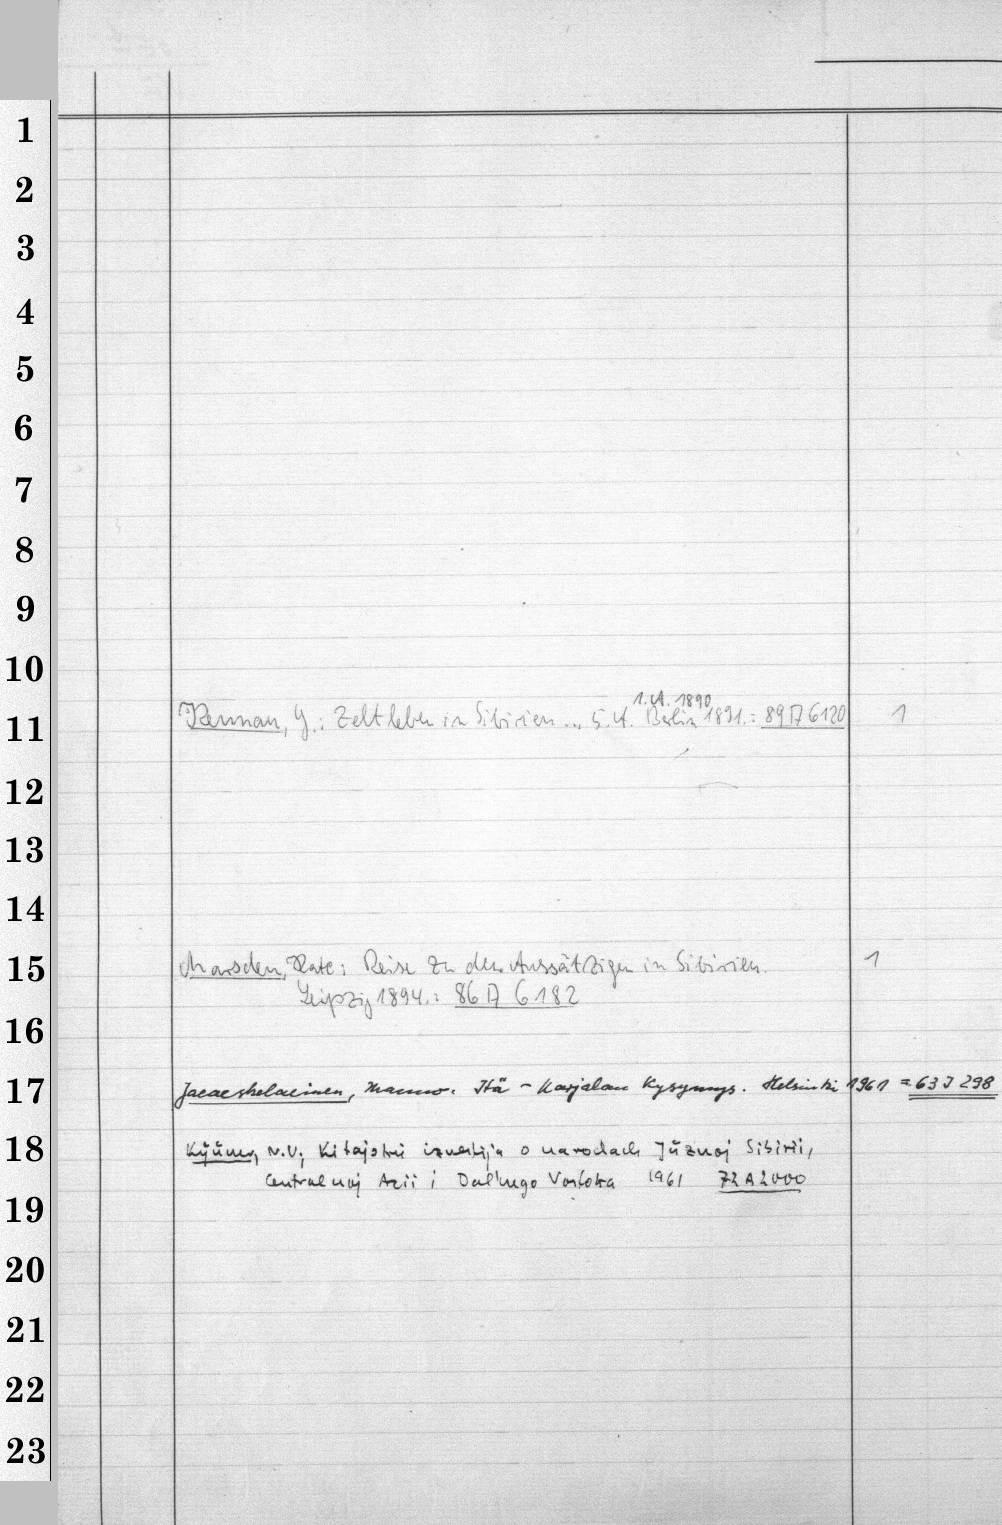 1
2
3
4
5
6
7
8
9
10
1.A. 1890
11 Kennan, G.: Zeltleben in Sibirien... 5. A. Berlin 1891.: 89 A 6120 1
12
13
14
15 Marsden, Kate: Reise zu den Aussätzigen in Sibirien. 1
Leipzig 1894.: 86 A 6182
16
17 Jaeaeskelaeinen, Manno. Itä-Karjalan Kysymys. Helsinki 1961 = 63 J 298
18 N.V.; Kitajskie izvestija o narodach Južnoj Sibirii,
Central'noj Azii i Dal'nego Vostoka 1961 72 A 2000
19
20
21
22
23